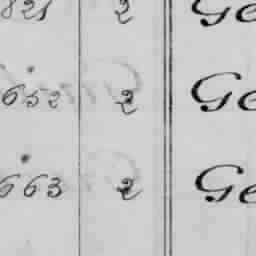 821 2 Ge
652 2 Ge
663 2 Ge